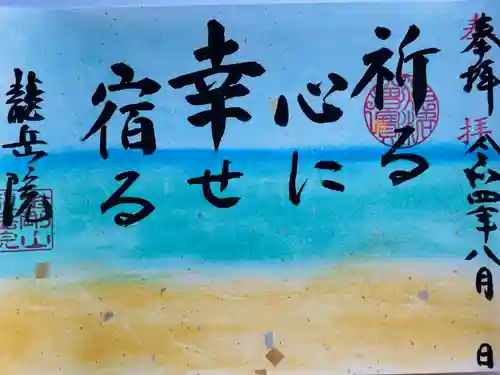 奉拝
令和四年八月 日
祈る
心に
幸せ
宿る
龍岳院